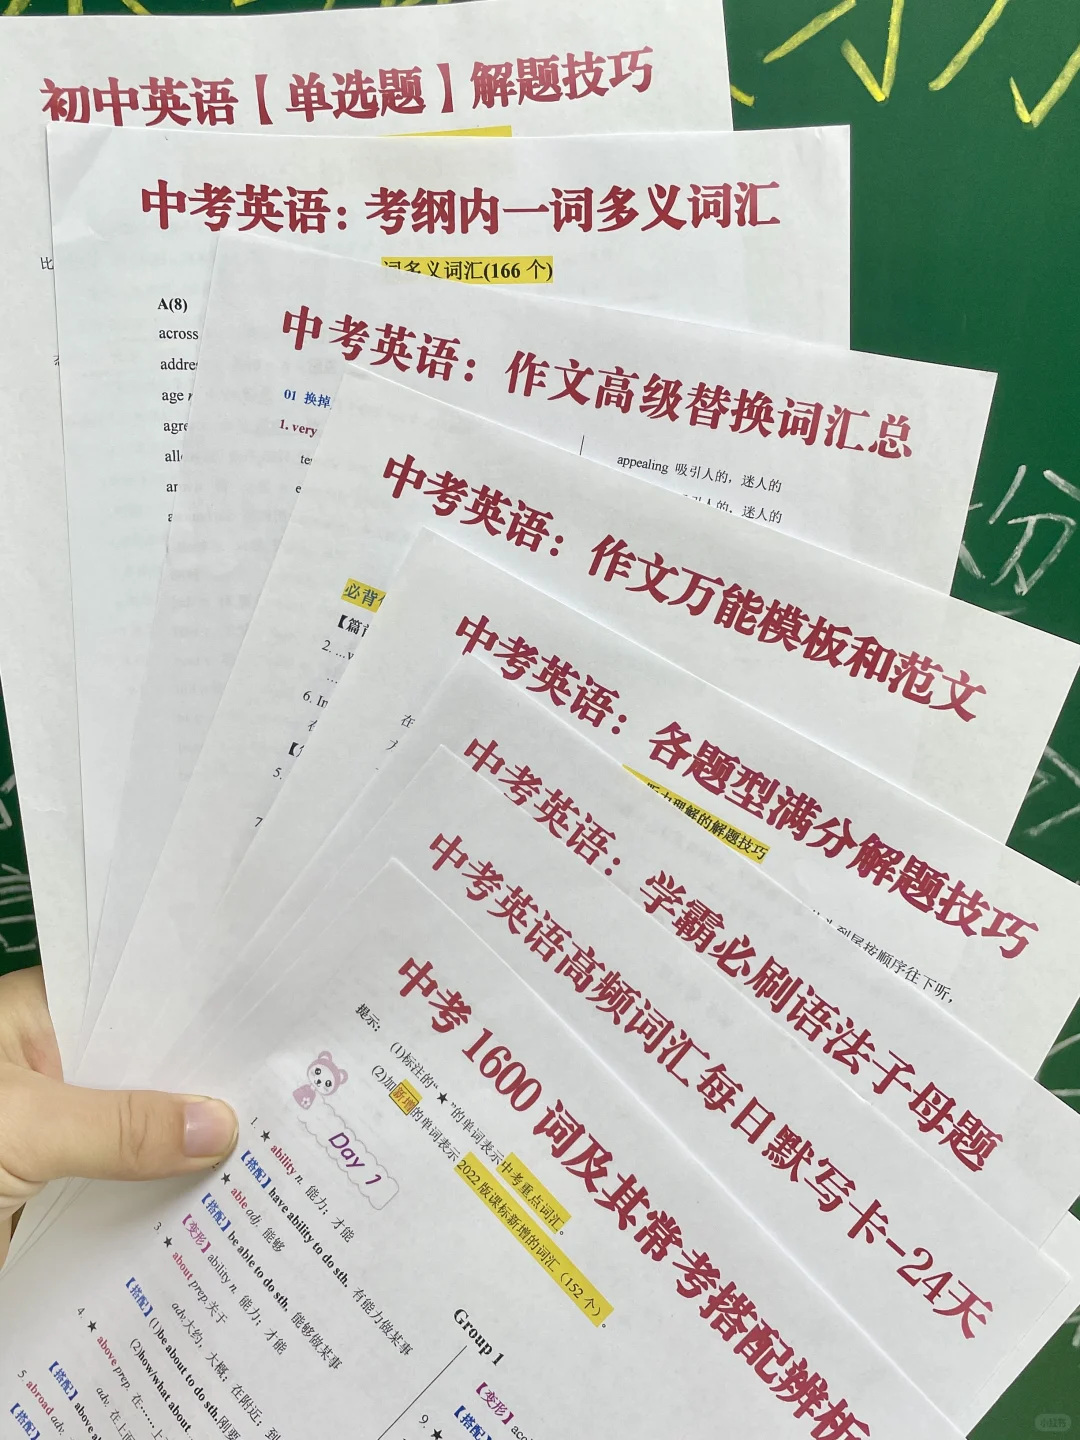 初中英语【单选题】解题技巧
中考英语：考纲内一词多义词汇
词多义词汇(166 个)
A(8)
across
addre
age
agre
all
中考英语：作文高级替换词汇总
01 换掉
1. very
appealing 吸引人的，迷人的
引人的，迷人的
中考英语：作文万能模板和范文
必背
2. ...v
6. In
在
5.
7
中考英语：各题型满分解题技巧
听力理解的解题技巧
到尾按顺序往下听，
中考英语：学霸必刷语法子母题
中考英语高频词汇每日默写卡-24天
中考 1600 词及其常考搭配辨析
提示：
(1)标注的“★”的单词表示中考重点词汇。
(2)加新增的单词表示 2022 版课标新增的词汇（152 个）。
Day 1
Group 1
1. ★ ability n. 能力；才能
【搭配】have ability to do sth. 有能力做某事
★ able adj. 能够
【搭配】be able to do sth. 能够做某事
【变形】ability n. 能力；才能
3. ★ about prep.关于
adv.大约，大概；在附近；到
【搭配】(1)be about to do sth.刚要
(2)how/what about
4. ★ above prep. 在……上
adv. 在上面
【搭配】above
5. abroad adv.
【搭配】
【变形】
9. ★
【搭配】
小红书